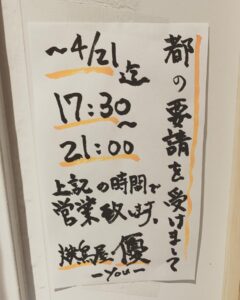 都の要請を受けまして
〜4/21迄
17:30
〜
21:00
上記の時間で
営業致します。
焼鳥屋・優
-you-